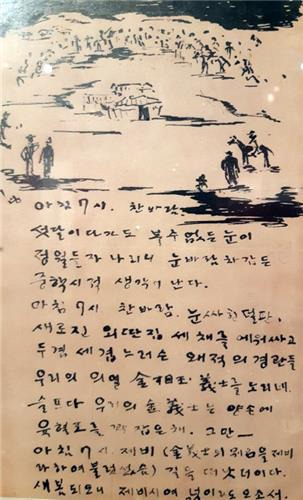 아침 7시. 찬바람.
섯달이다가도 복수없든 눈이
정월들자 나리니 눈바람 차갑든
중학시적 생각이 난다.
아침 7시. 찬바람. 눈싸힌 덜판.
새로진 외딴집 세채를 에워싸고
두겹 세겹 느러슨 왜적의 경관들
우리의 의열 金相玉 義士를 노리네.
슬프다 우리의 金義士는 양손에
육혈포를 꽉 잡은채. 그만—
아침 7시. 제비 (金義士의 別名을 제비
라하여 불렀었소) 길을 떠났더이다.
새봄되오니 제비시여 넋이라도 오소서.